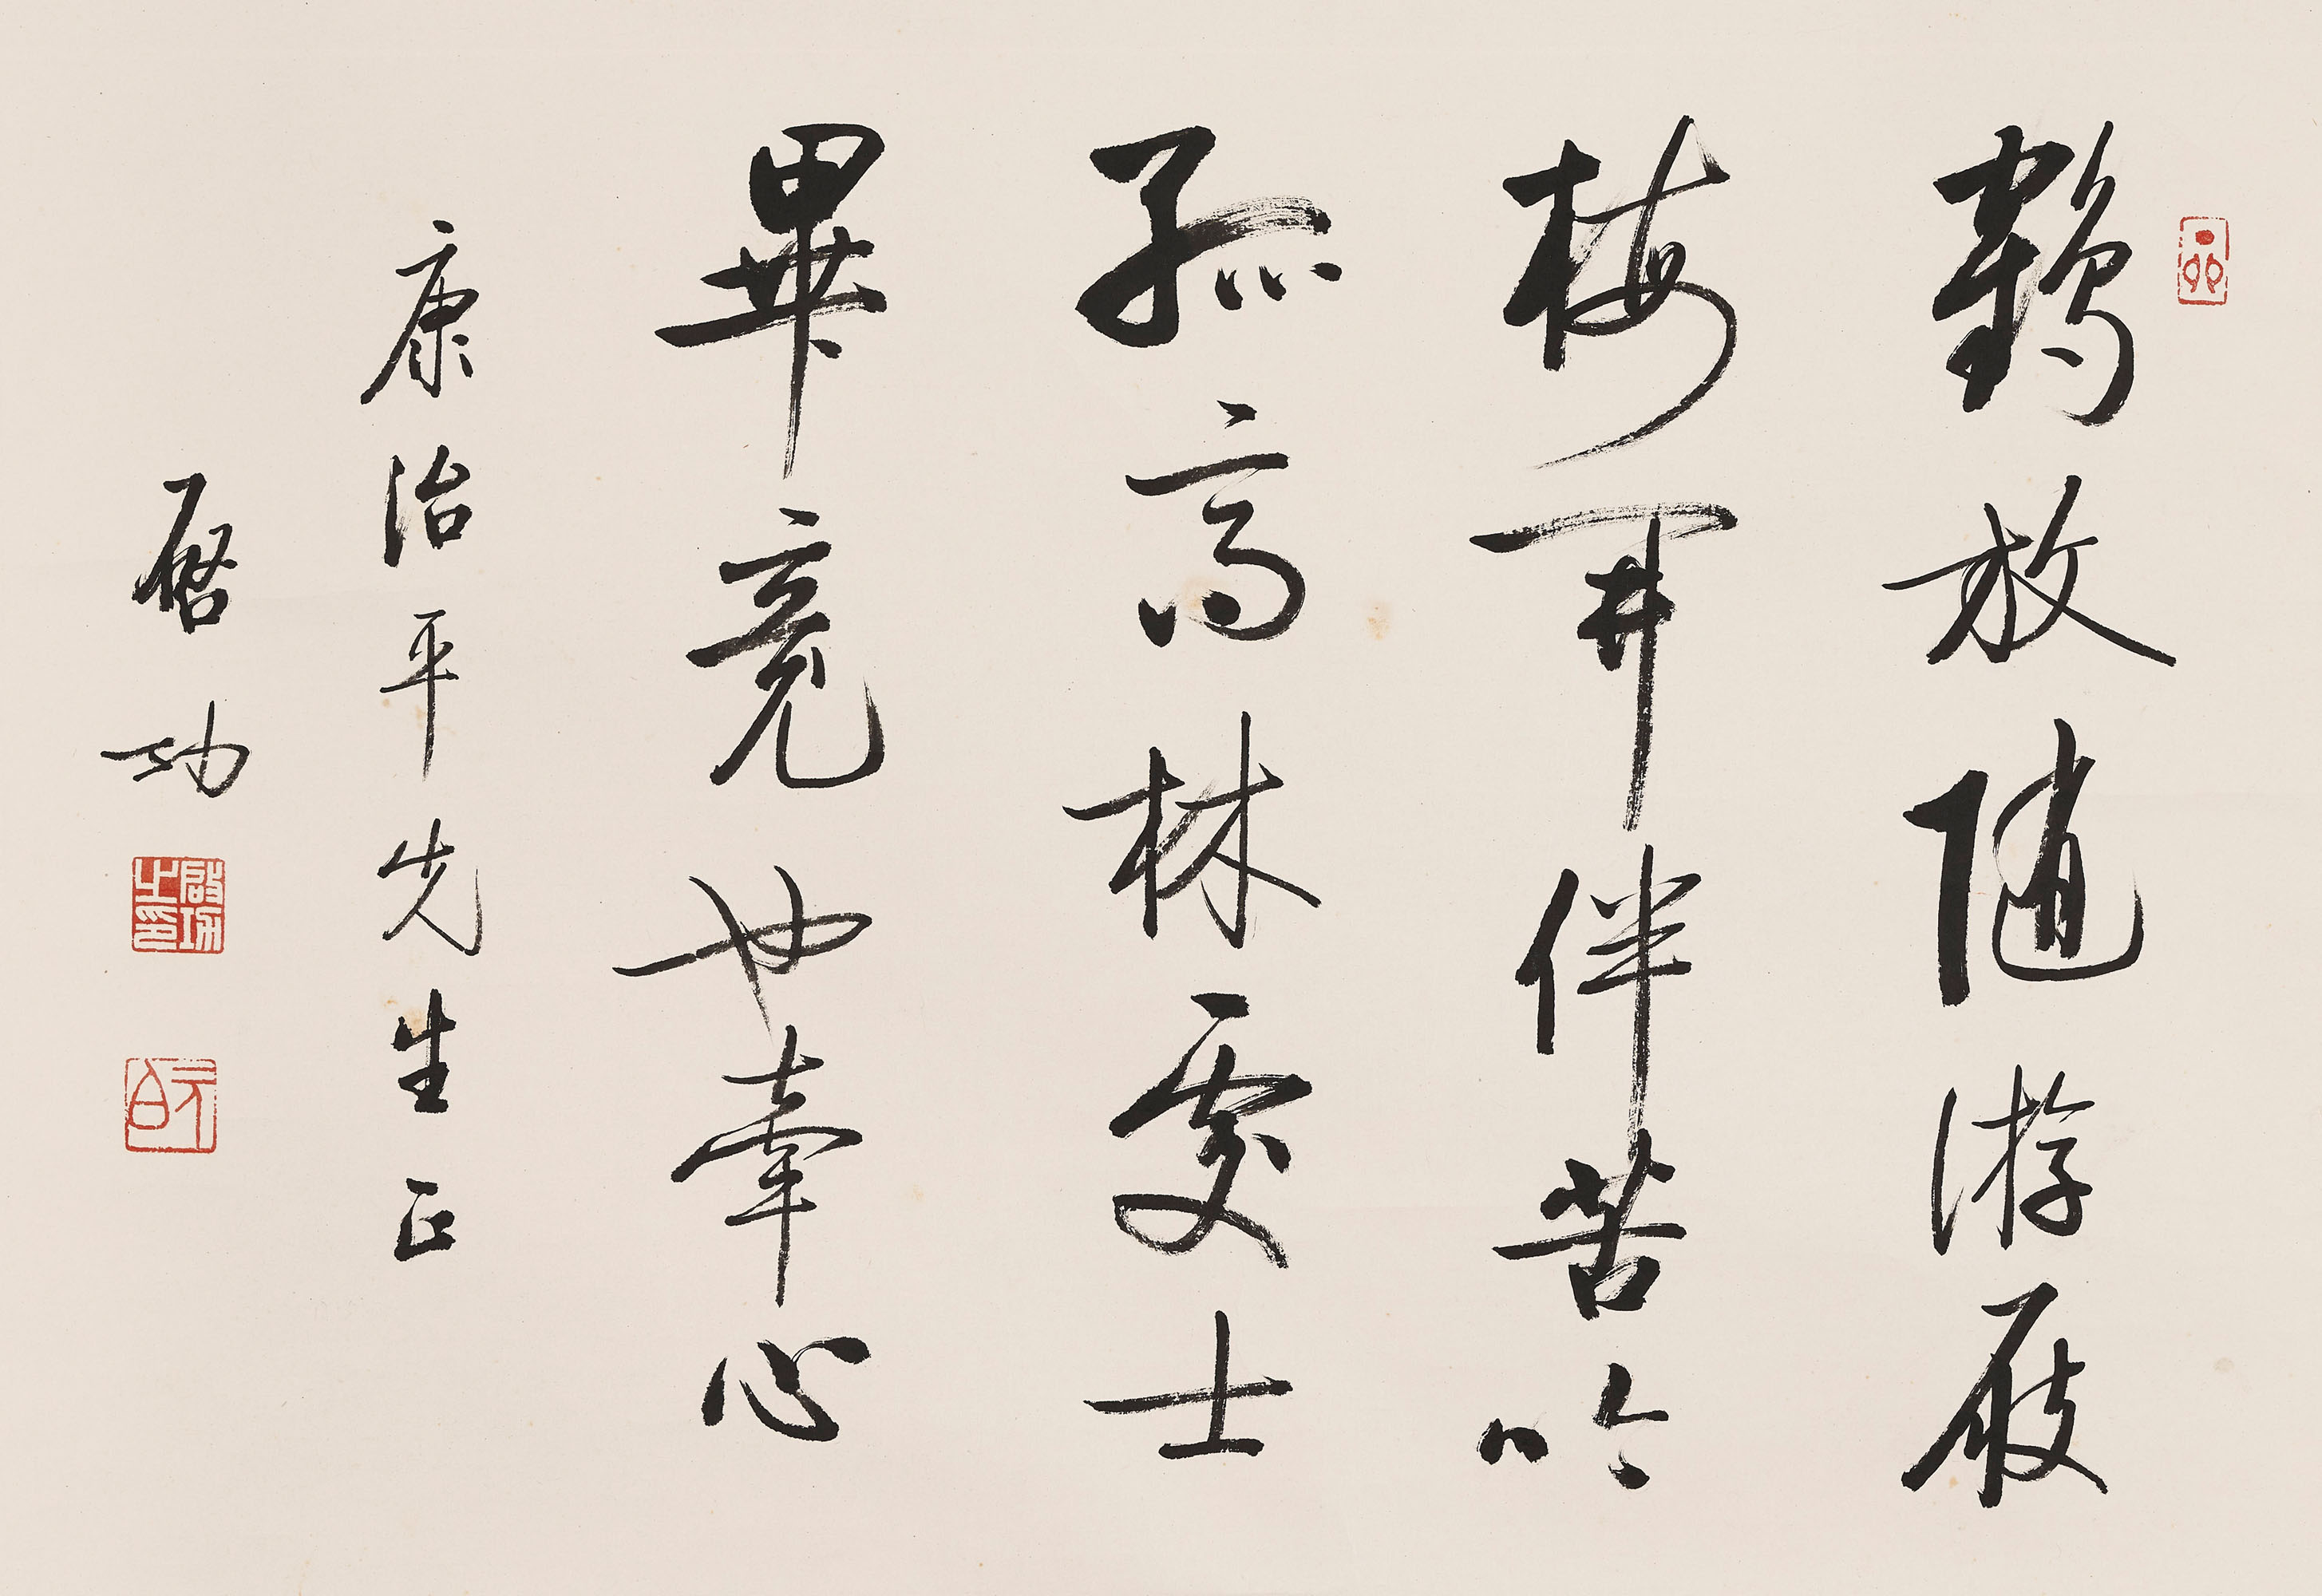 鶴放随游屐
梅開伴苦吟
孤高林處士
畢竟也牽心
康治平先生正
啓功
啟功之印